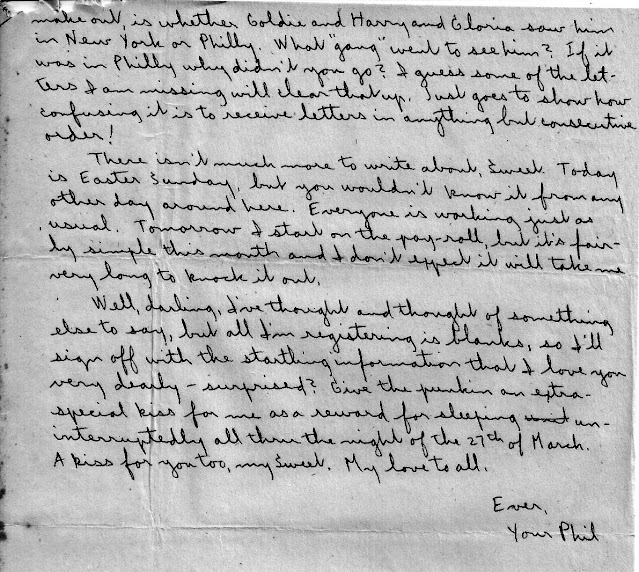 make out, is whether Goldie and Harry and Gloria saw him
in New York or Philly. What "gang" went to see him? If it
was in Philly why didn't you go? I guess some of the let-
ters I am missing will clear that up. Just goes to show how
confusing it is to receive letters in anything but consecutive
order!
There isn't much more to write about, Sweet. Today
is Easter Sunday, but you wouldn't know it from any
other day around here. Everyone is working just as
usual. Tomorrow I start on the pay-roll, but it's fair-
ly simple this month and I don't expect it will take me
very long to knock it out.
Well, darling, I've thought and thought of something
else to say, but all I'm registering is blanks, so I'll
sign off with the startling information that I love you
very dearly – surprised? Give the punkin an extra-
special kiss for me as a reward for sleeping un-
interruptedly all thru the night of the 27th of March.
A kiss for you too, my Sweet. My love to all.
Ever,
Your Phil